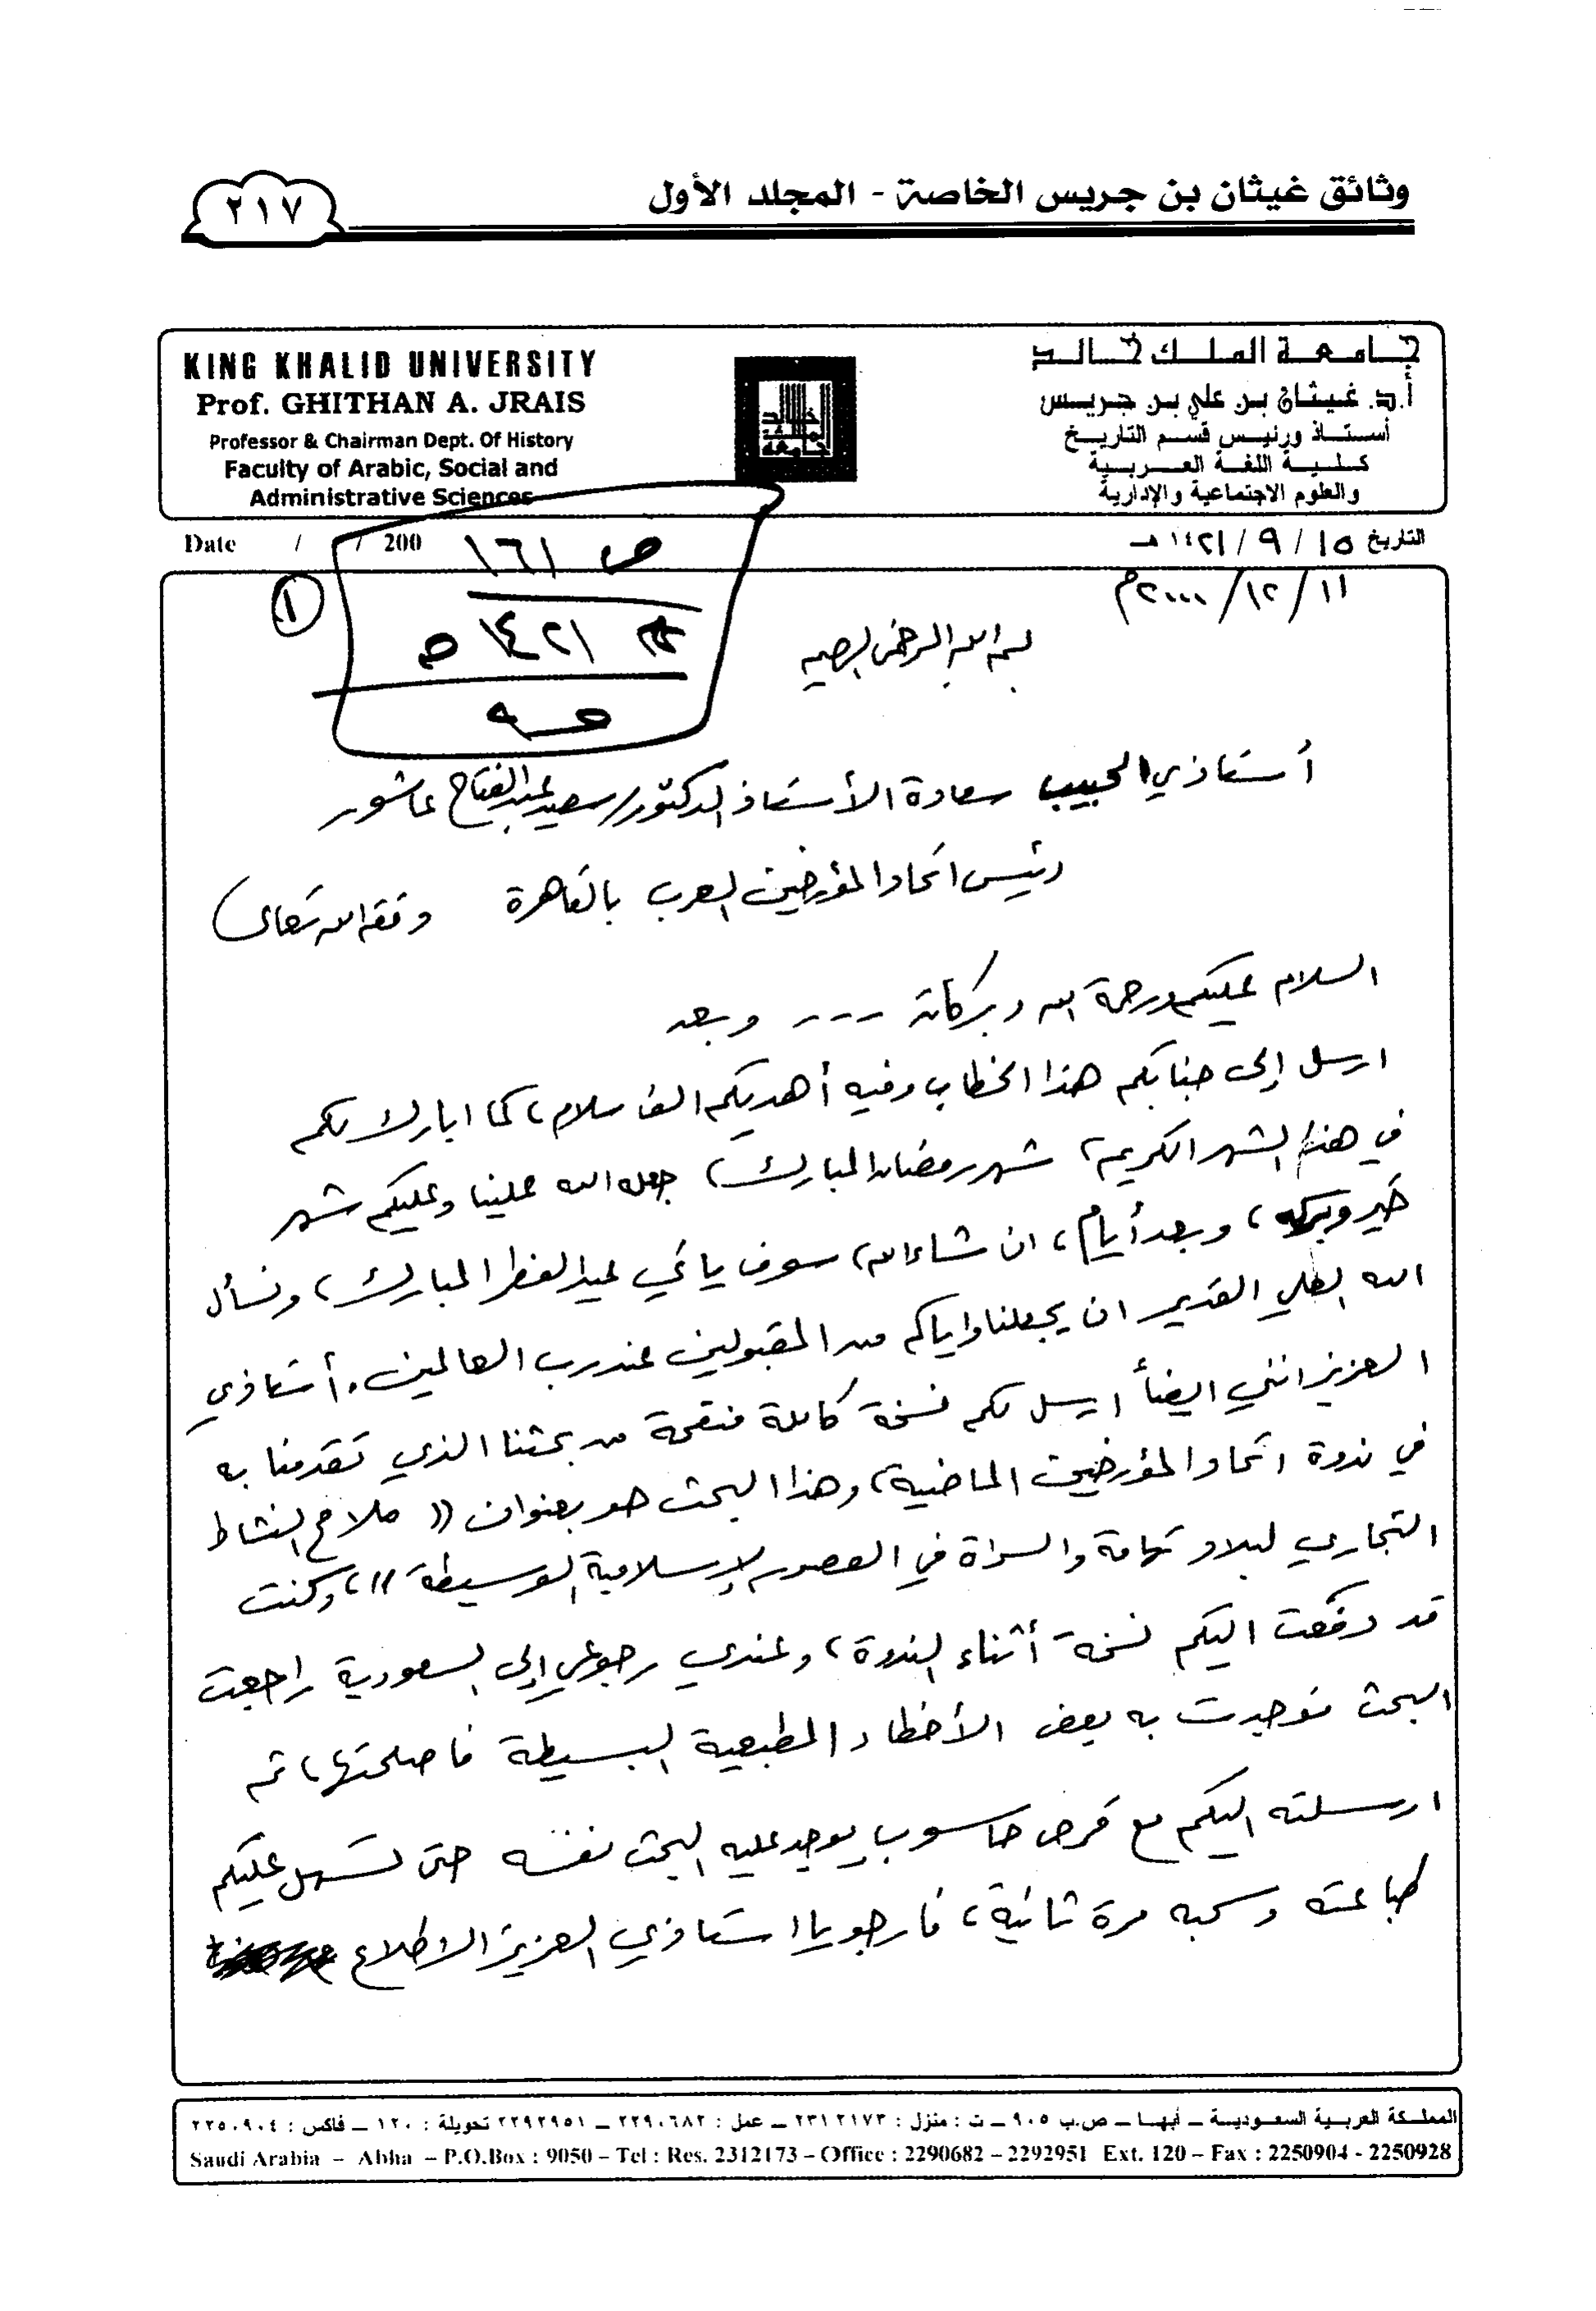 وثائق غيثان بن جريس الخاصة - المجلد الأول
٢١٧
KING KHALID UNIVERSITY
Prof. GHITHAN A. JRAIS
Professor & Chairman Dept. Of History
Faculty of Arabic, Social and
Administrative Sciences
جامعة الملك خالد
أ.د. غيثان بن علي بن جريس
أستاذ ورئيس قسم التاريخ
كلية اللغة العربية
والعلوم الاجتماعية والإدارية
Date / / 200
التاريخ ١٥ / ٩ / ١٤٢١ هـ
١١ / ١٢ / ٢٠٠٠م
ص ١٦١
١٤٢١ هـ
١
بسم الله الرحمن الرحيم
أستاذي الحبيب سعادة الأستاذ الدكتور/ سعيد عبدالفتاح عاشور
رئيس اتحاد المؤرخين العرب بالقاهرة وفقه الله تعالى
السلام عليكم ورحمة الله وبركاته --- وبعد
ارسل إلى جنابكم هذا الخطاب وفيه أهديكم الف سلام، كما ابارك لكم
في هذا الشهر الكريم، شهر رمضان المبارك، جعله الله علينا وعليكم شهر
خير وبركه، وبعد أيام، ان شاء الله، سوف يأتي عيد الفطر المبارك، ونسأل
الله العلي القدير ان يجعلنا واياكم من المقبولين عند رب العالمين. أستاذي
العزيز انني ايضاً ارسل لكم نسخة كاملة منقحة من بحثنا الذي تقدمنا به
في ندوة اتحاد المؤرخين الماضية، وهذا البحث هو بعنوان (( ملامح النشاط
التجاري لبلاد تهامة والسراة في العصور الإسلامية الوسيطة ))، وكنت
قد دفعت اليكم نسخة أثناء الندوة، وعندي رجوعي إلى السعودية راجعت
البحث فوجدت به بعض الأخطاء المطبعية البسيطة فاصلحتها، ثم
ارسلته اليكم مع قرص حاسوب يوجد عليه البحث نفسه حتى تسهل عليكم
طباعته وسحبه مرة ثانية، فارجو يا استاذي العزيز الاطلاع
المملكة العربية السعودية – أبها – ص.ب ٩٠٥ – ت : منزل : ٢٣١٢١٧٣ – عمل : ٢٢٩٠٦٨٢ – ٢٢٩٢٩٥١ تحويلة : ١٢٠ – فاكس : ٢٢٥٠٩٠٤
Saudi Arabia – Abha – P.O.Box : 9050 – Tel : Res. 2312173 – Office : 2290682 – 2292951 Ext. 120 – Fax : 2250904 - 2250928